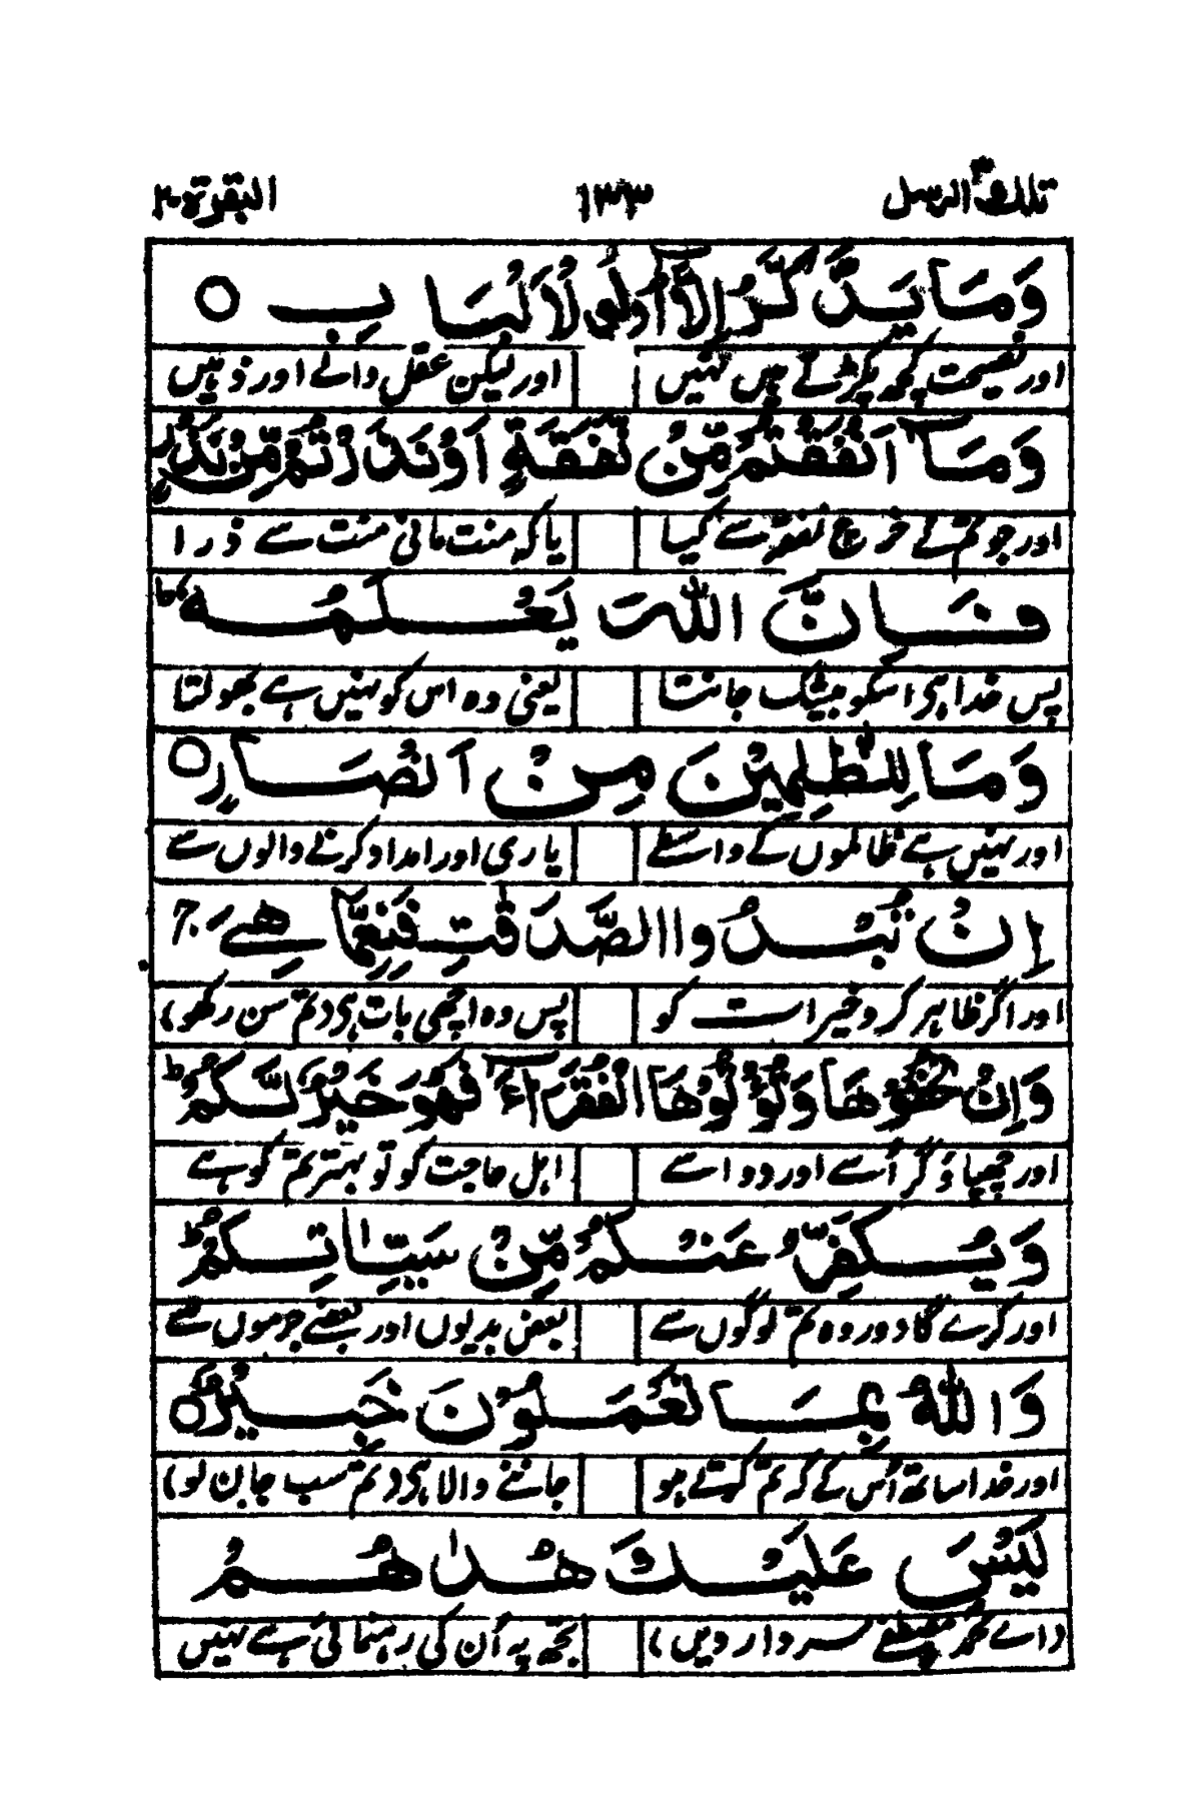 تلك الرسل ٣ ١٣٣ البقرة ٢
وَمَا يَذَّكَّرُ اِلَّآ اُولُوا الْاَلْبَابِ ○
اور نصیحت کچھ پکڑتے ہیں نہیں اور لیکن عقل والے اور ذہیں
وَمَآ اَنْفَقْتُمْ مِّنْ نَّفَقَةٍ اَوْ نَذَرْتُمْ مِّنْ نَّذْرٍ
اور جو تم نے خرچ نفقہ سے کیا یا کہ منت مانی منت سے ذرا
فَاِنَّ اللّٰهَ يَعْلَمُهٗ ط
پس خدا ہی اسکو بیشک جانتا یعنی وہ اس کو نہیں ہے بھولتا
وَمَا لِلظّٰلِمِيْنَ مِنْ اَنْصَارٍ ○
اور نہیں ہے ظالموں کے واسطے یاری اور امداد کرنے والوں سے
اِنْ تُبْدُوا الصَّدَقٰتِ فَنِعِمَّا هِيَ ج
اور اگر ظاہر کرو خیرات کو پس وہ اچھی بات ہی (تم سن رکھو)
وَاِنْ تُخْفُوْهَا وَتُؤْتُوْهَا الْفُقَرَآءَ فَهُوَ خَيْرٌ لَّكُمْ ط
اور چھپاؤ گر اُسے اور دو اسے اہل حاجت کو تو بہتر تم کو ہے
وَيُكَفِّرُ عَنْكُمْ مِّنْ سَيِّاٰتِكُمْ ط
اور کرے گا دور وہ تم لوگوں سے بعض بدیوں اور بعضے جرموں سے
وَاللّٰهُ بِمَا تَعْمَلُوْنَ خَبِيْرٌ ○
اور خدا ساتھ اُس کے کہ تم کرتے ہو جاننے والا ہی (تم سب جان لو)
لَيْسَ عَلَيْكَ هُدٰىهُمْ
(اے محمد مصطفےٰ سردار دیں) تجھ پہ اُن کی رہنمائی ہے نہیں